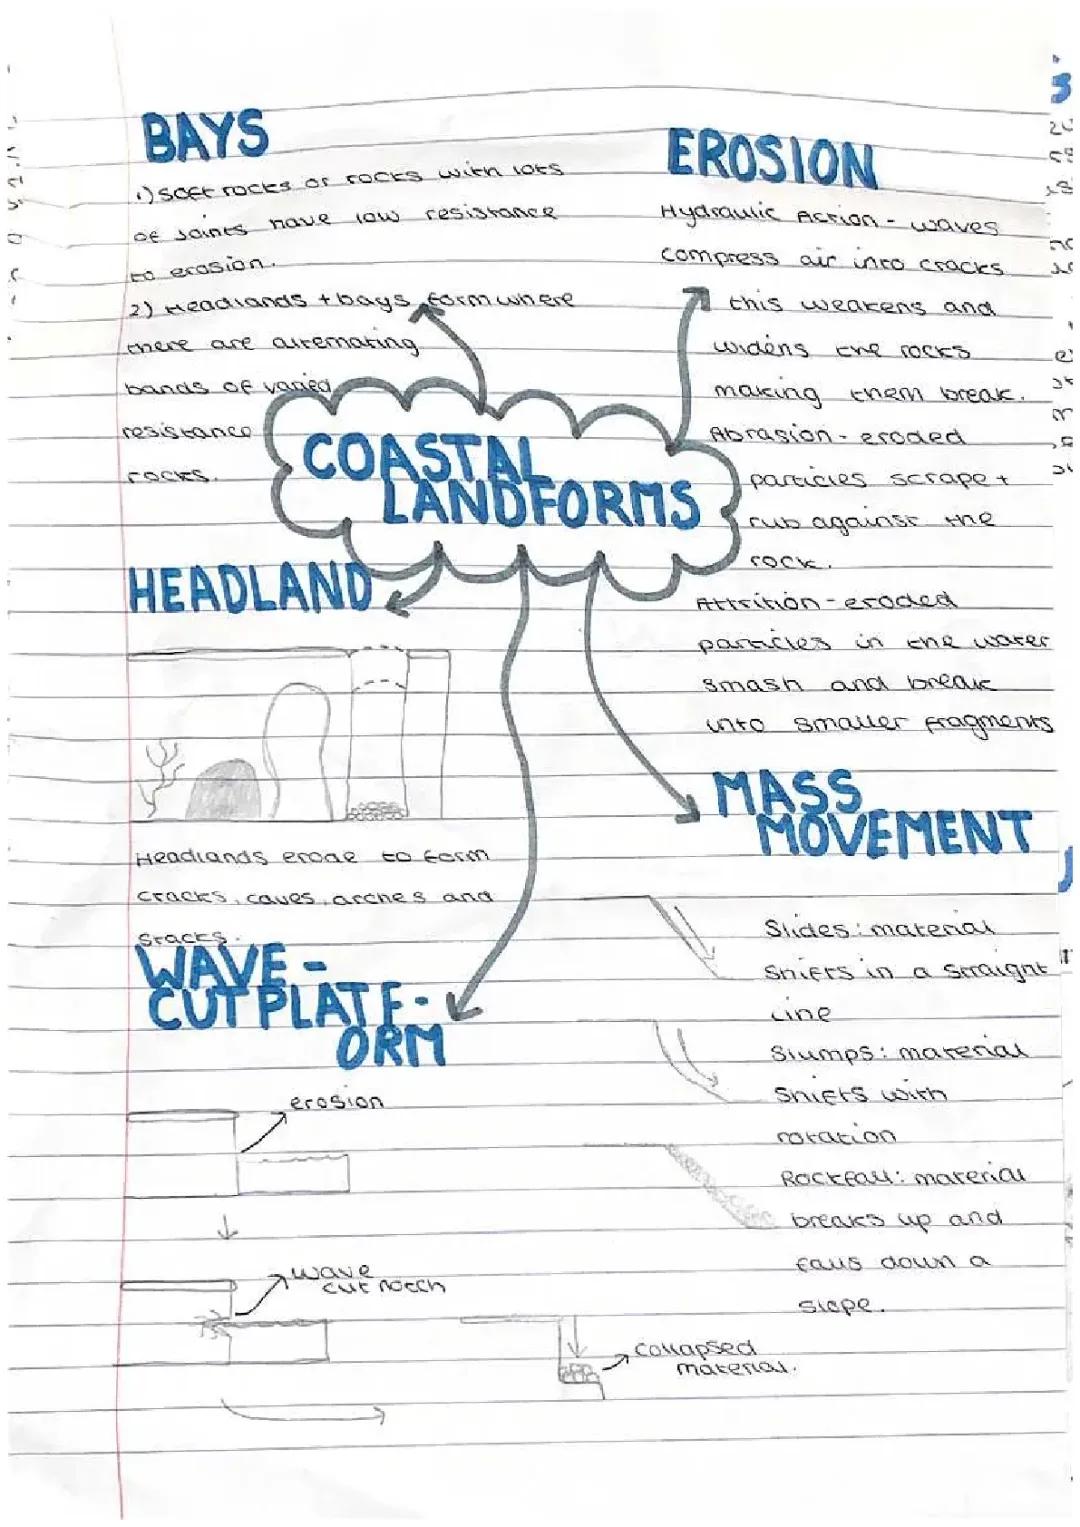 BAYS
1) Soft rocks or rocks with lots
of joints have low resistance
to erosion.
2) Headlands + bays form where
there are alternating
bands of varied
resistance
rocks.
EROSION
Hydraulic Action - waves
compress air into cracks
this weakens and
widens the rocks
making them break.
Abrasion - eroded
particles scrape +
rub against the
rock.
Attrition - eroded
particles in the water
smash and break
into smaller fragments
COASTAL
LANDFORMS
HEADLAND
Headlands erode to form
cracks, caves, arches and
stacks.
MASS
MOVEMENT
Slides: material
shifts in a straight
line
Slumps: material
shifts with
rotation
Rockfall: material
breaks up and
falls down a
slope.
WAVE-
CUT PLATF-
ORM
erosion
wave
cut notch
collapsed
material.